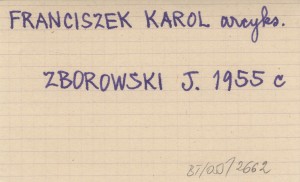 FRANCISZEK KAROL arcyks.
ZBOROWSKI J. 1955 c
BT/OSD/2662